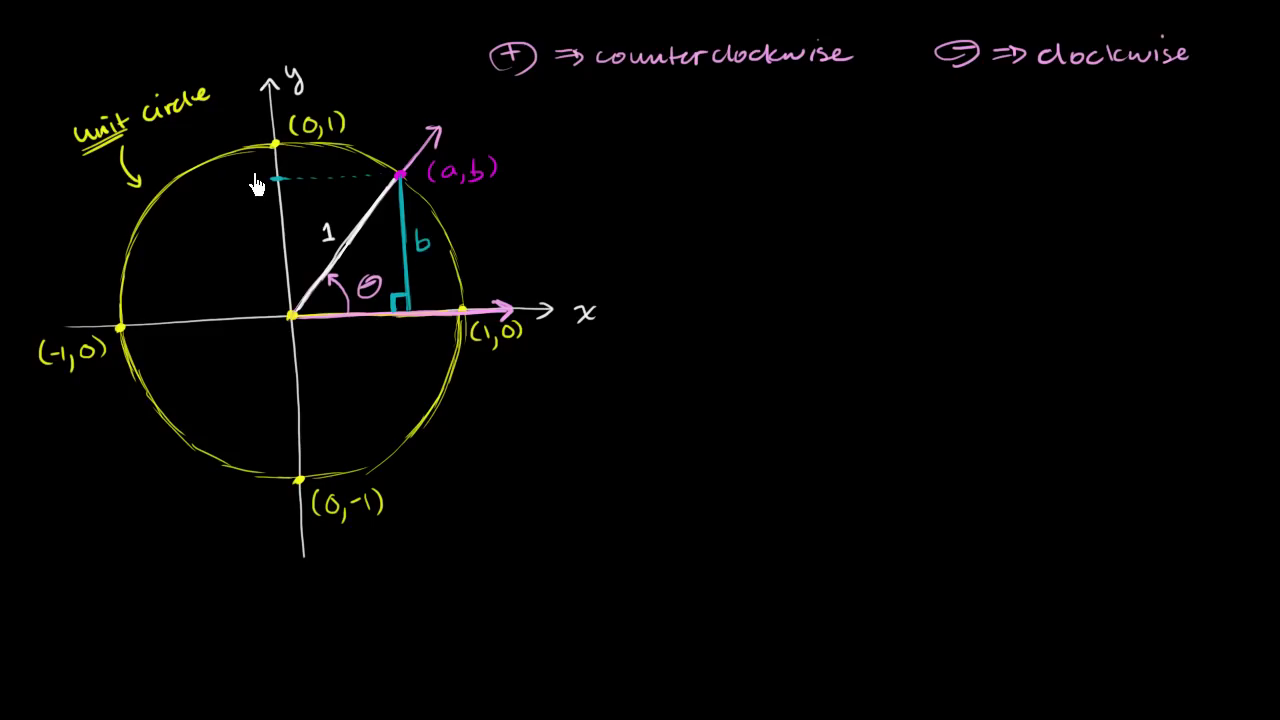 (+) ⇒ counterclockwise
(-) ⇒ clockwise
y
unit circle
(0,1)
(a,b)
1
b
θ
x
(1,0)
(-1,0)
(0,-1)